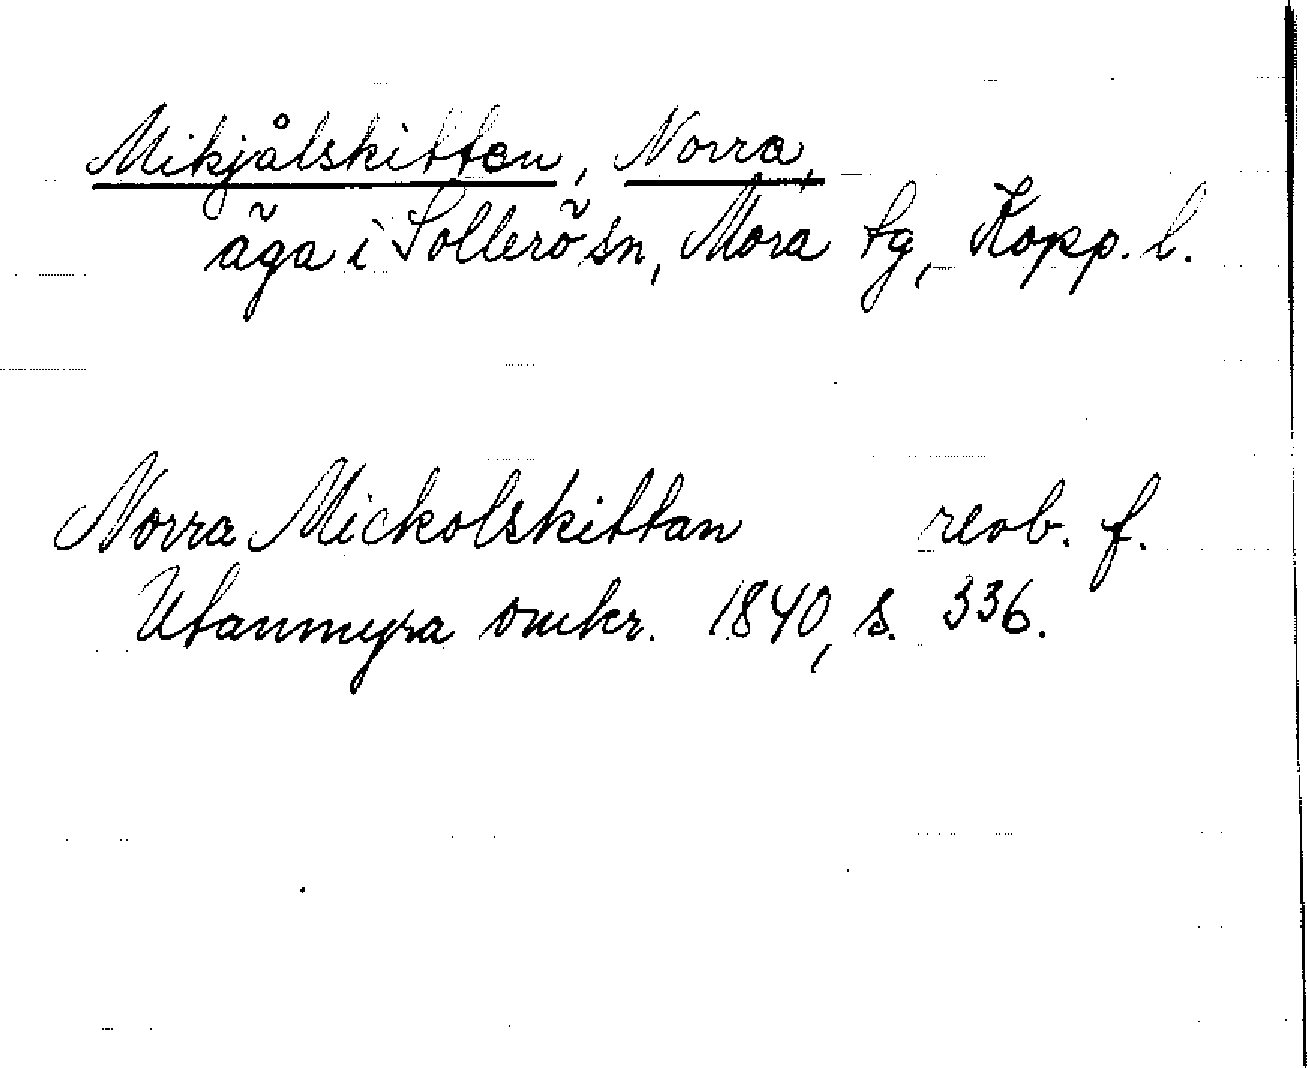 Mikjålskitten, Norra,
äga i Sollerö sn, Mora tg, Kopp. l.
Norra Mickolskittan reob. f.
Utanmyra omkr. 1840, s. 336.